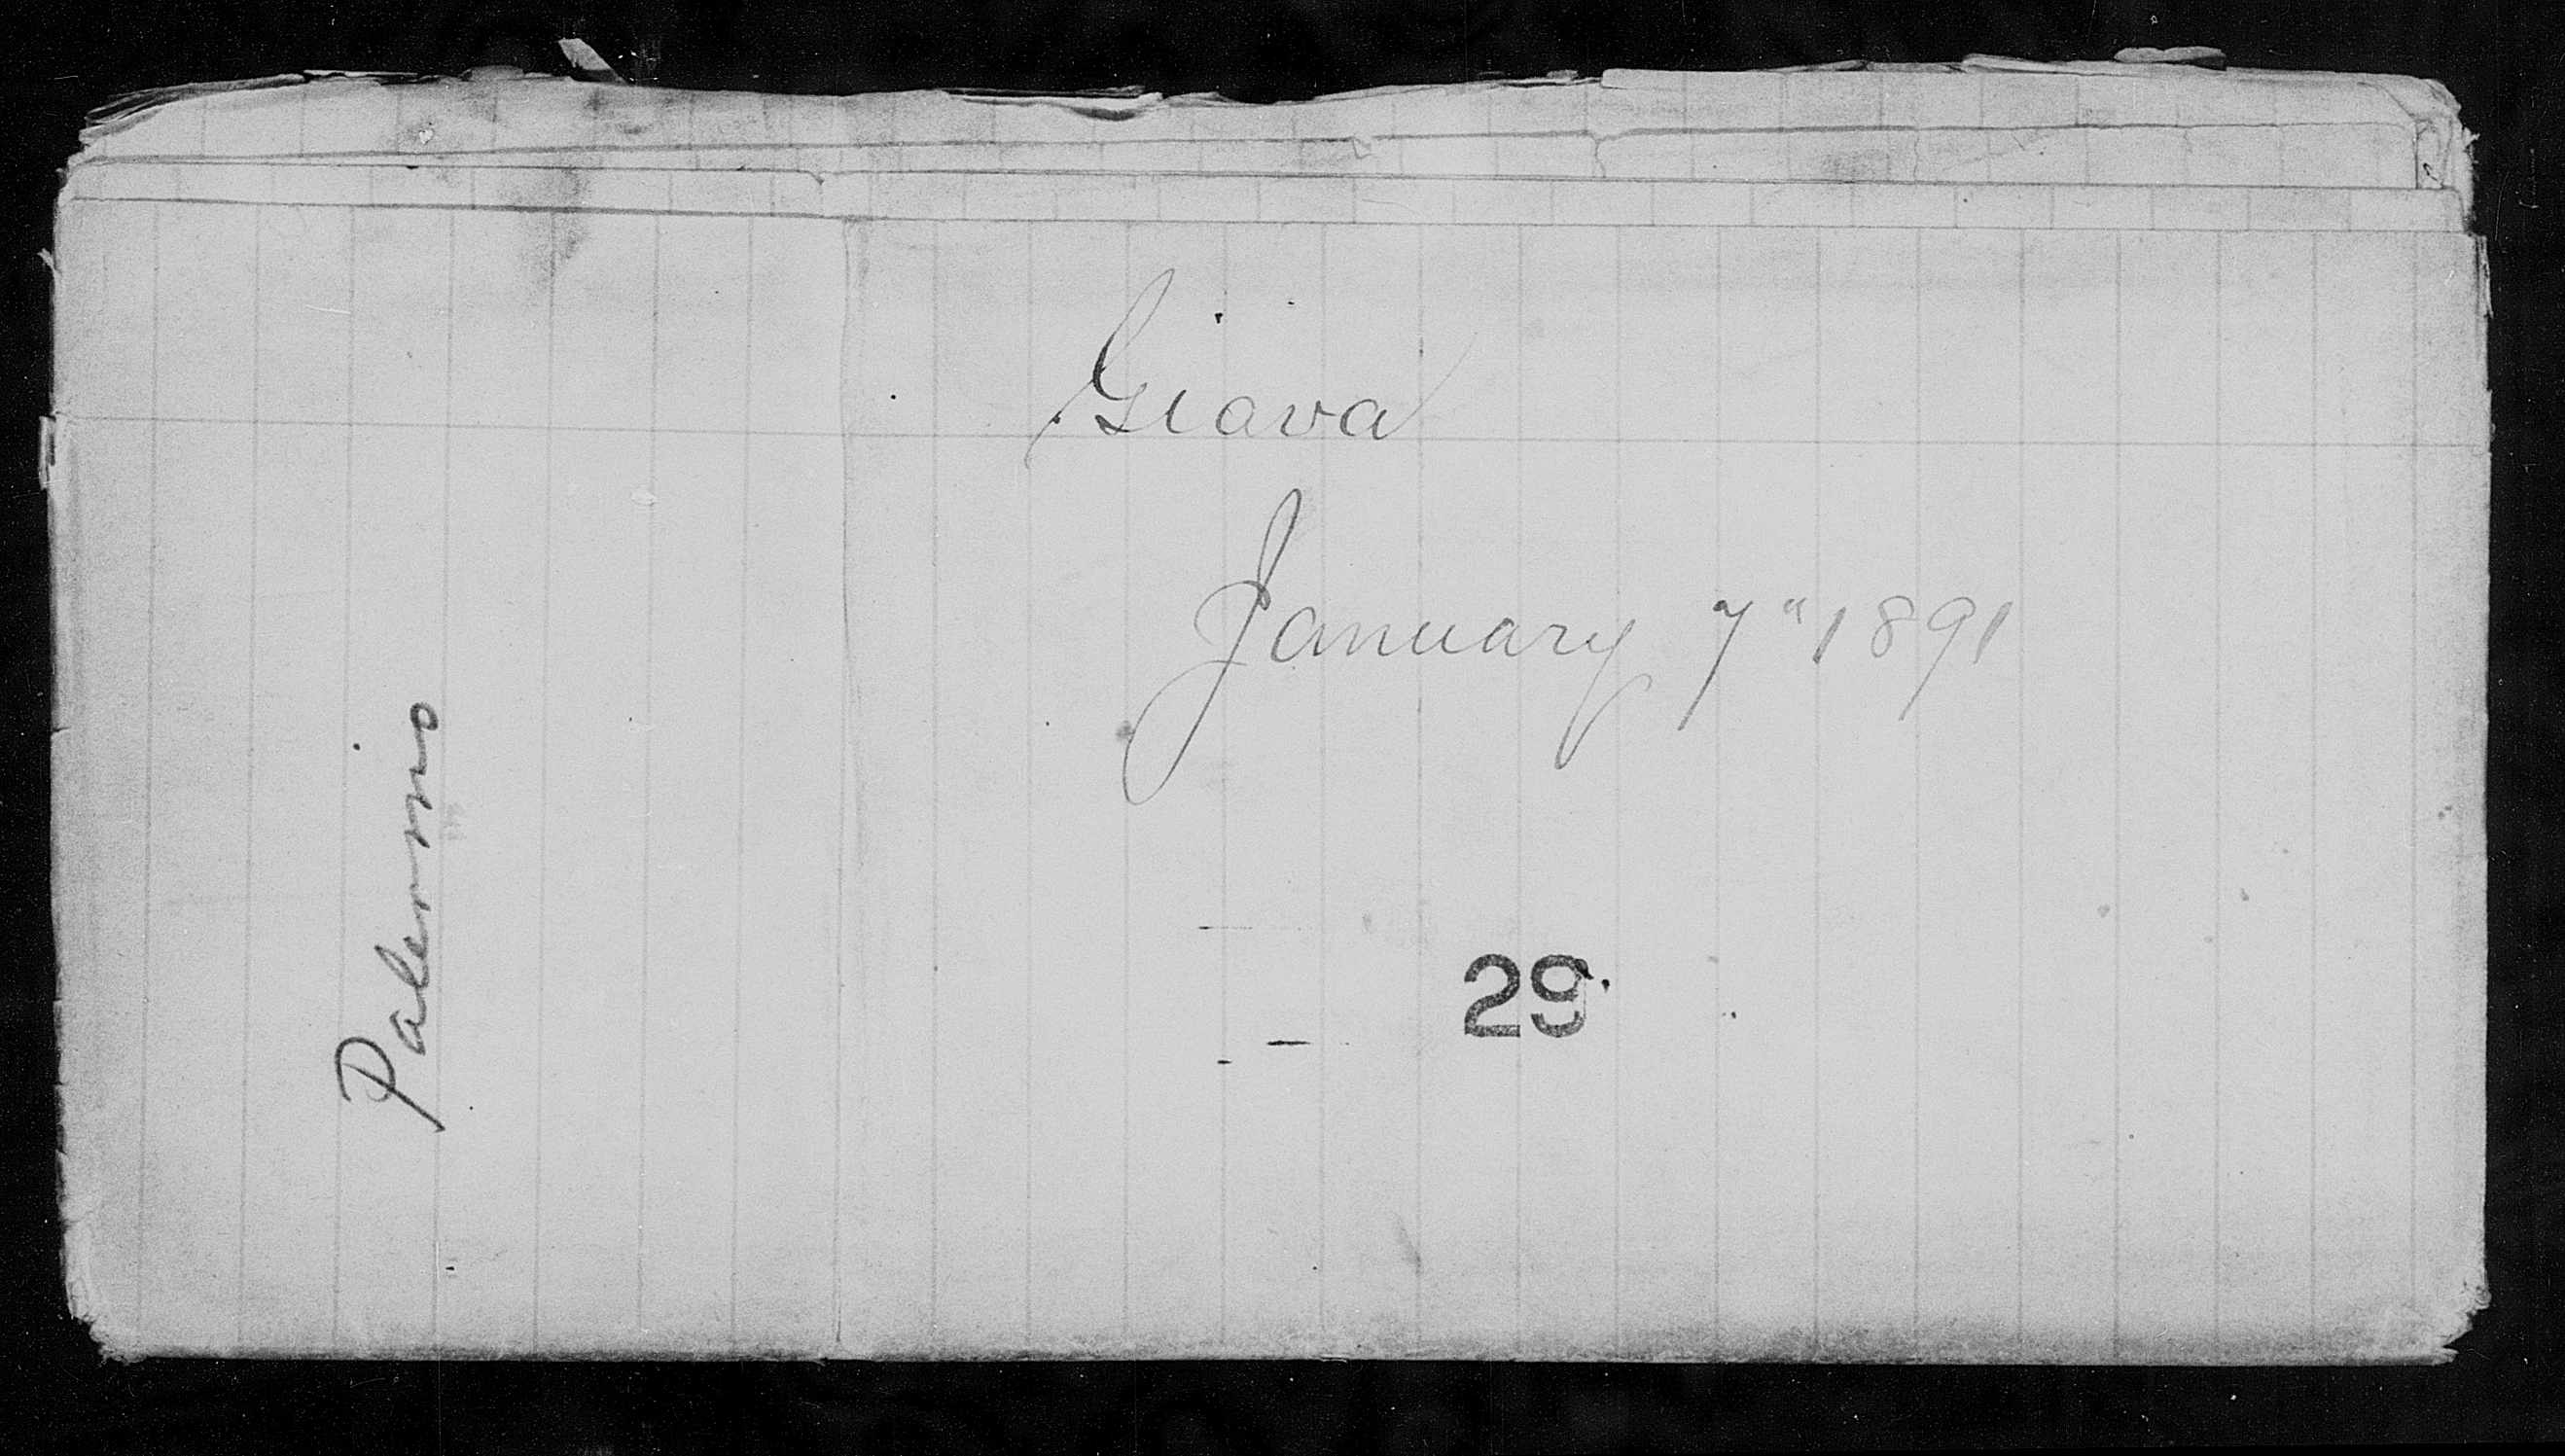 Giava
January 7" 1891
29
Palermo